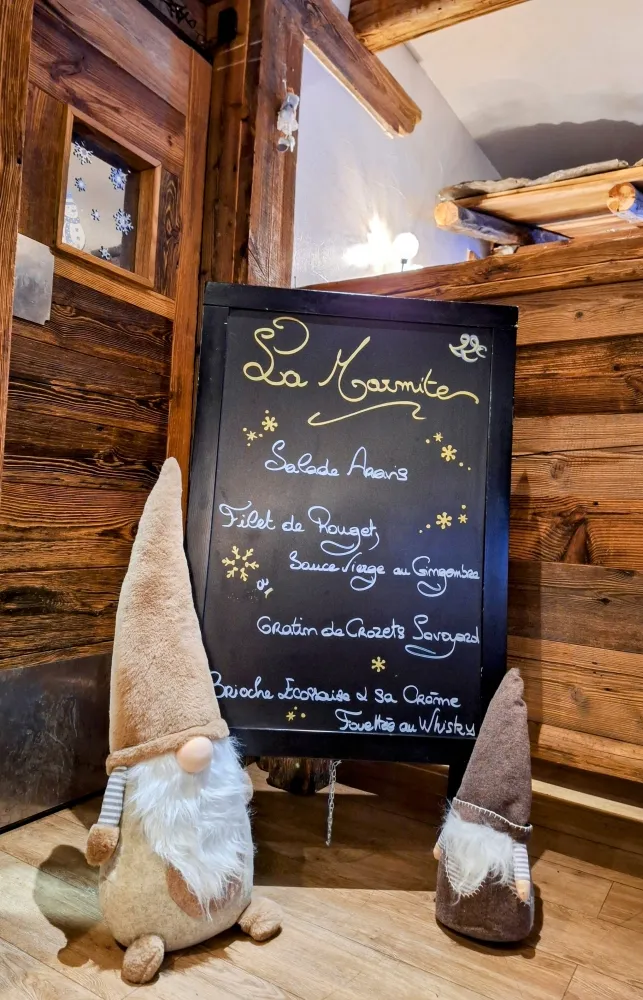 La Marmite
Salade Aravis
Filet de Rouget,
Sauce Vierge au Gingembre
ou
Gratin de Crozets Savoyard
Brioche Écossaise & sa Crème
Fouettée au Whisky